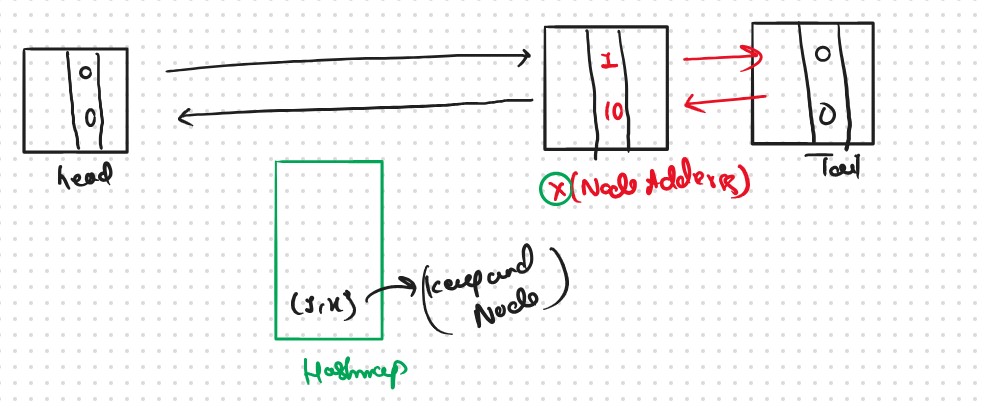 0
0
head
1
10
X (Node Address)
0
0
Tail
(1,x)
(key and
Node)
Hashmap